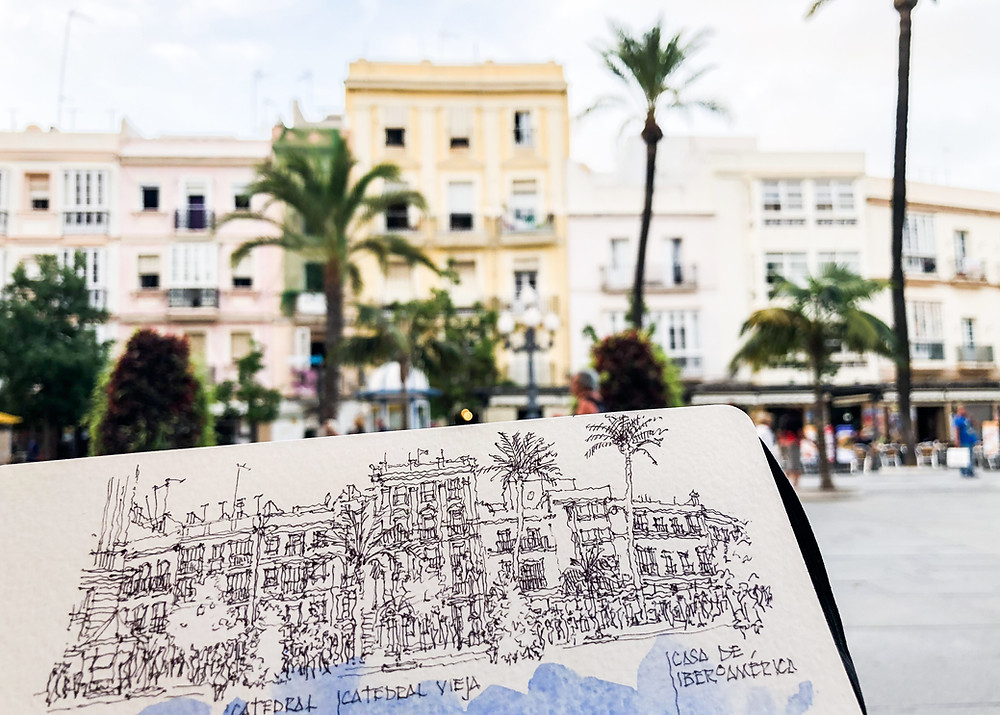 CATEDRAL
CATEDRAL VIEJA
CASA DE
IBEROAMÉRICA